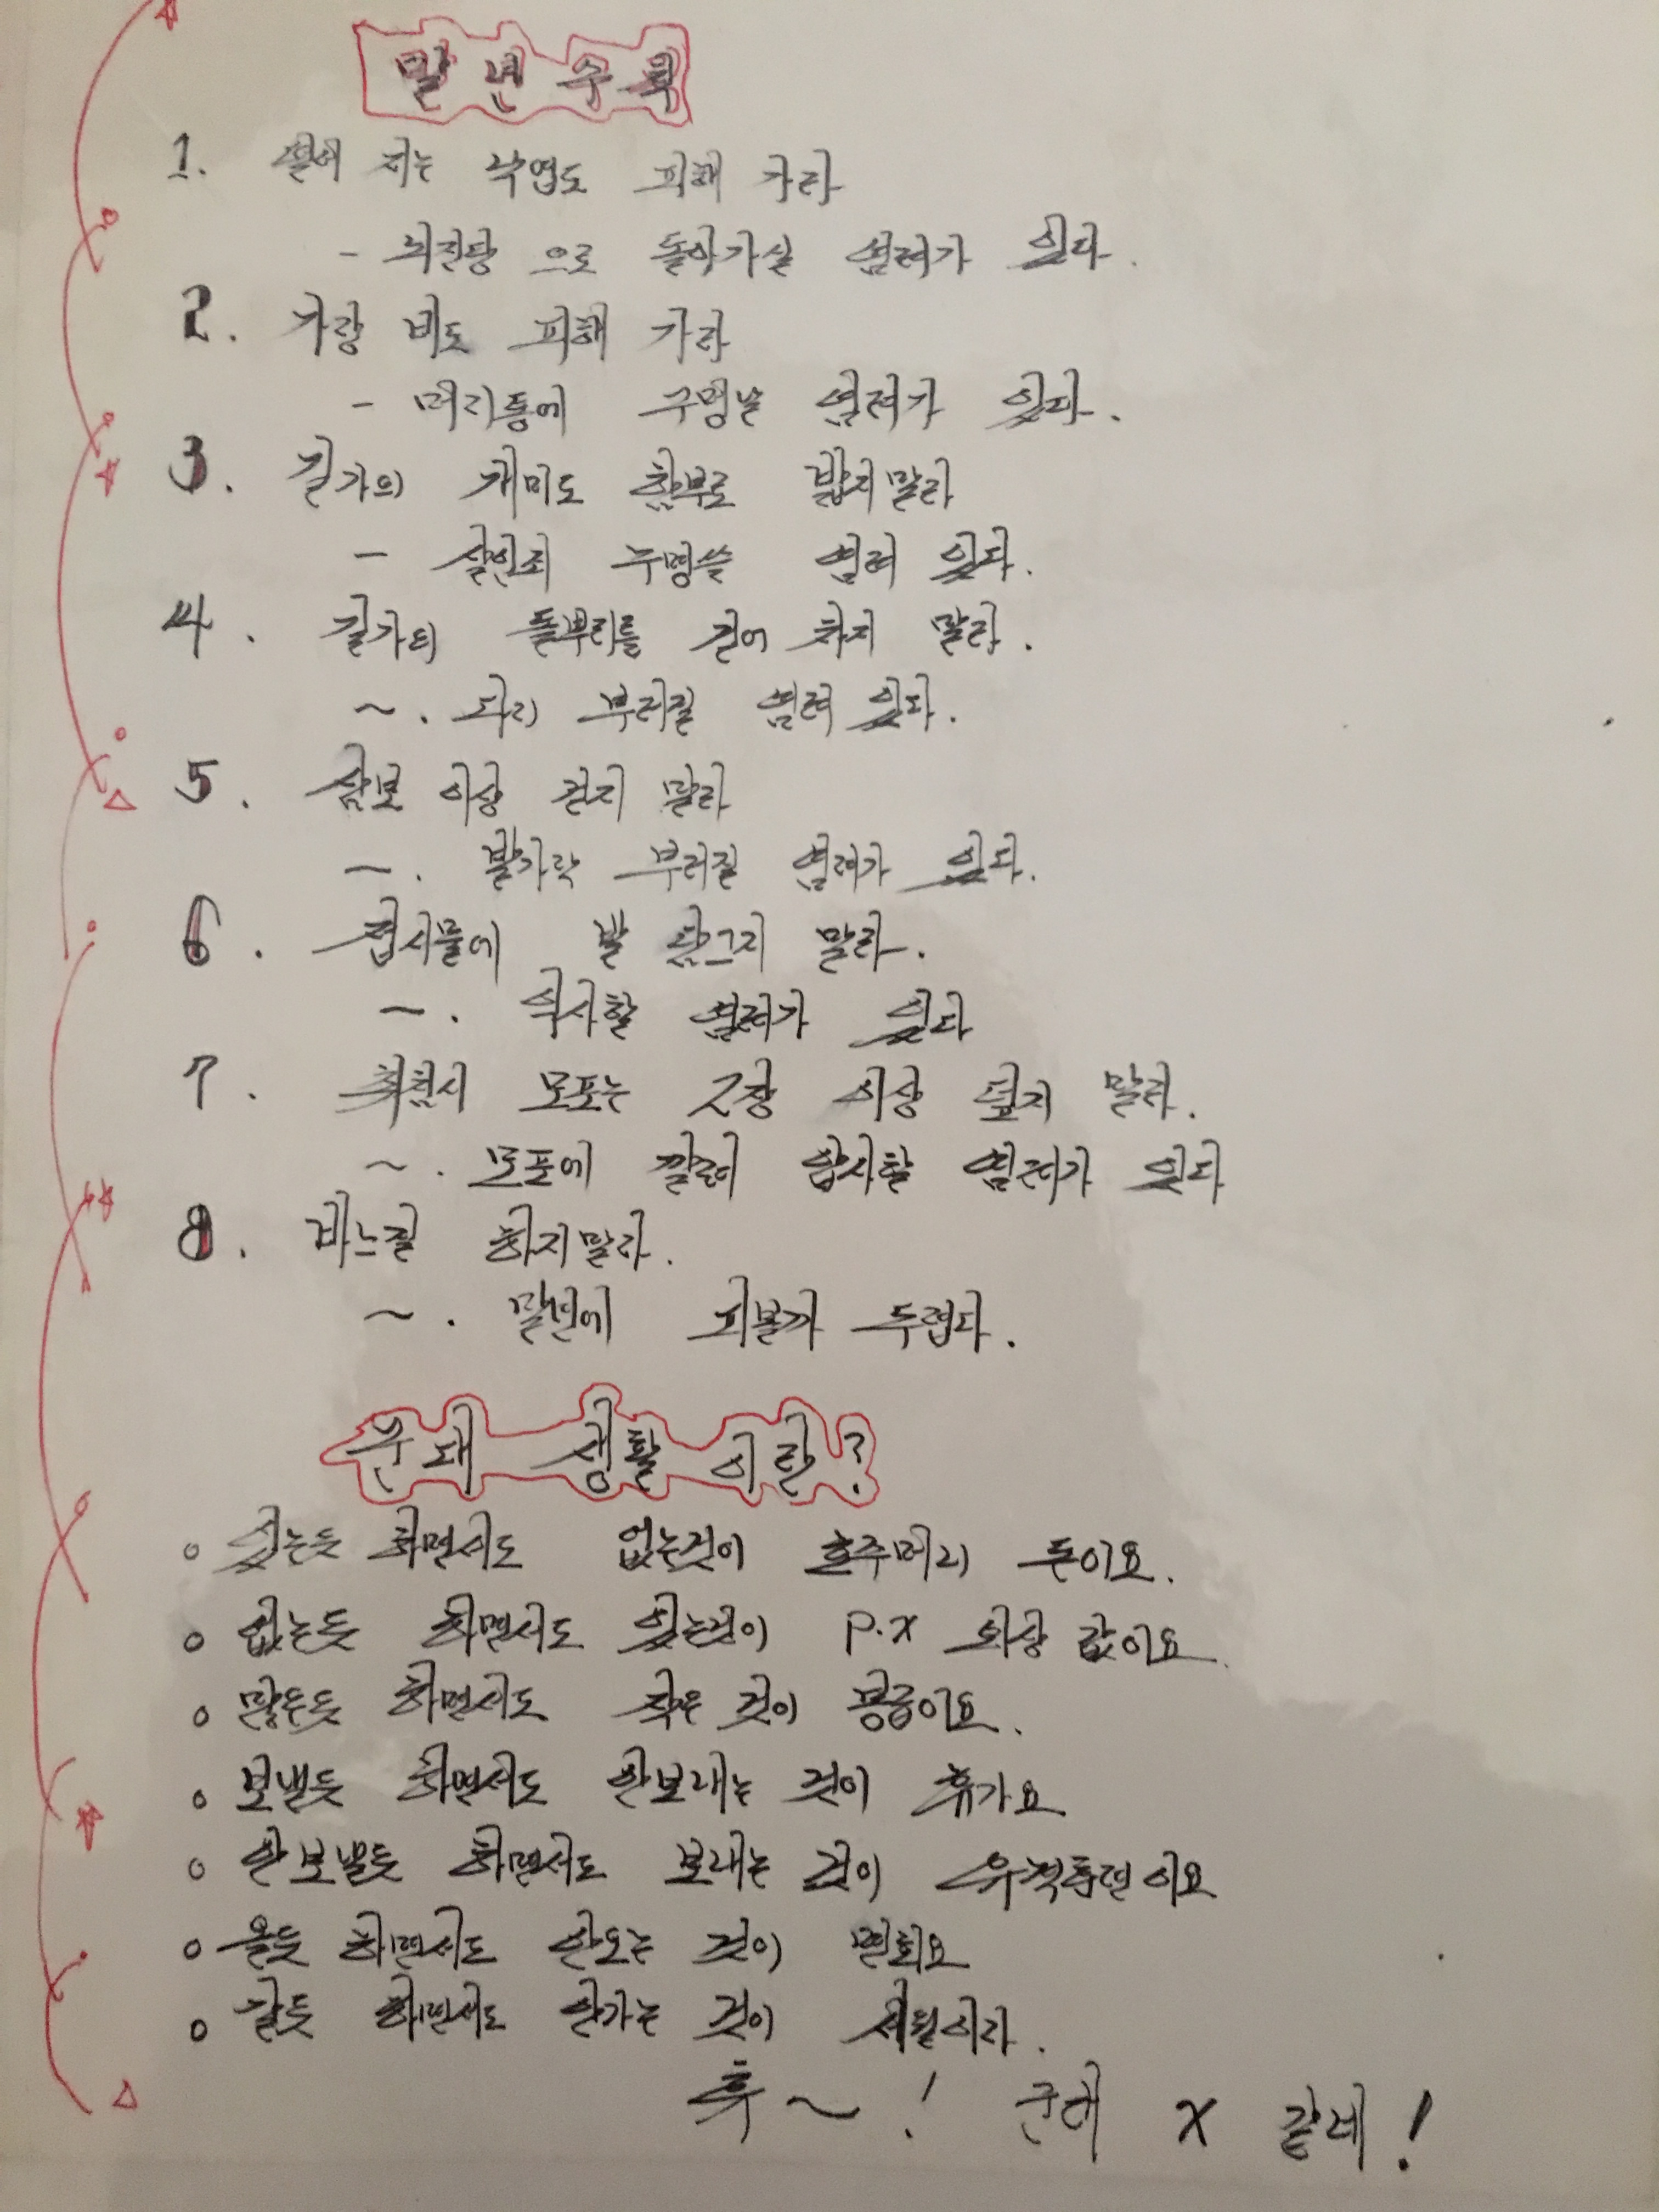 말년수칙
1. 떨어지는 낙엽도 피해 가라
- 뇌진탕 으로 돌아가실 염려가 있다.
2. 가랑 비도 피해 가라
- 머리통에 구멍날 염려가 있다.
3. 길가의 개미도 함부로 밟지말라
- 살인죄 누명쓸 염려 있다.
4. 길가의 돌뿌리를 걷어 차지 말라.
~. 다리 부러질 염려 있다.
5. 삼보 이상 걷지 말라
~. 발가락 부러질 염려가 있다.
6. 접시물에 발 담그지 말라.
~. 익사할 염려가 있다
7. 취침시 모포는 2장 이상 덮지 말라.
~. 모포에 깔려 압사할 염려가 있다
8. 바느질 하지말라.
~. 말년에 피볼까 두렵다.
군대 생활 이란?
o 있는듯 하면서도 없는것이 호주머리 돈이요.
o 없는듯 하면서도 있는것이 P.X 외상 값이요.
o 많은듯 하면서도 작은 것이 봉급이요.
o 보낼듯 하면서도 안보내는 것이 휴가요
o 안보낼듯 하면서도 보내는 것이 유격훈련이요
o 올듯 하면서도 안오는 것이 면회요
o 갈듯 하면서도 안가는 것이 세월이라.
후~! 군대 X 같네!